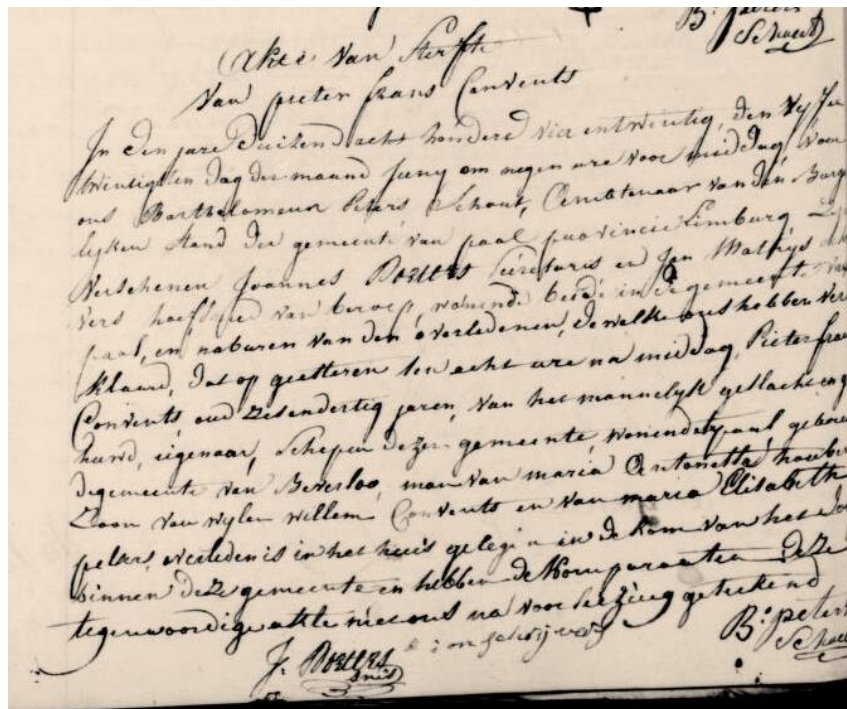 B: peters
Schout
Akte van Sterfte
Van pieter frans Convents
In den jare duizend acht honderd vier entwintig, den vyf en
twintigsten dag der maand Juny om negen ure voor middag, voor
ons Bartholomeus Peters Schout, Ambtenaar van den Burge
lyken Stand der gemeente van paal provincie Limburg
Verschenen Joannes Boelers Secretaris en Jan Mathys
vers hoefsmed van beroep, wonende beide in de gemeente van
paal, en naburen van den overledenen, de welke ons hebben ver
klaard, dat op gesteren ten acht ure na middag, Pieter frans
Convents, oud zesendertig jaren, van het mannelyk geslacht en
huwd, eigenaar, Schepen dezer gemeente wonende te paal geboren
de gemeente van Beverloo, man van maria Antonetta
Zoon van wylen willem Convents en van maria Elisabeth
overleden is in het huis gelegen in de kom van het
binnen deze gemeente en hebben de Komparanten deze
tegenwoordige akte met ons na voorlezing getekend
J. Boelers
B: peters
Schout